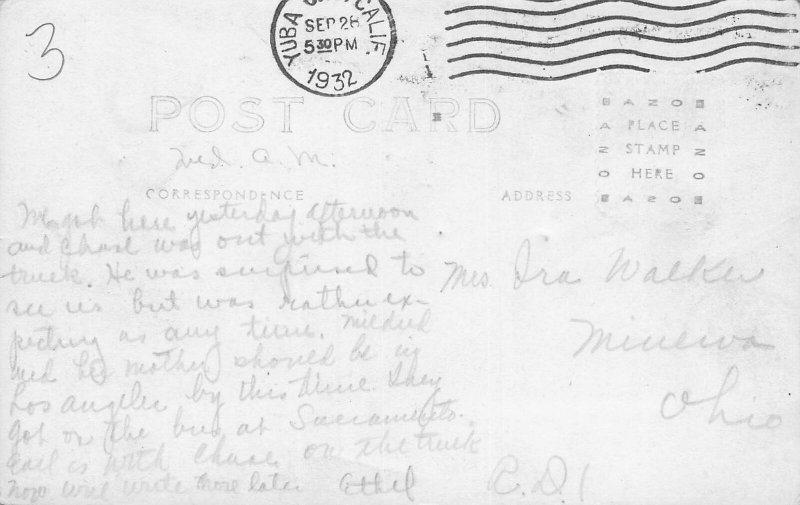 3
YUBA CITY, CALIF.
SEP 28
5 30 PM
1932
POST CARD
AZO
PLACE
STAMP
HERE
AZO
Wed. A. M.
CORRESPONDENCE
ADDRESS
We got here yesterday afternoon
and Chase was out with the
truck. He was surprised to
see us but was rather ex-
pecting us any time. Mildred
and her mother should be in
Los Angeles by this time. They
got on the bus at Sacramento.
Earl is with Chase on the truck
now will write more later Ethel
Mrs. Ira Walker
Minerva
Ohio
R.D.1